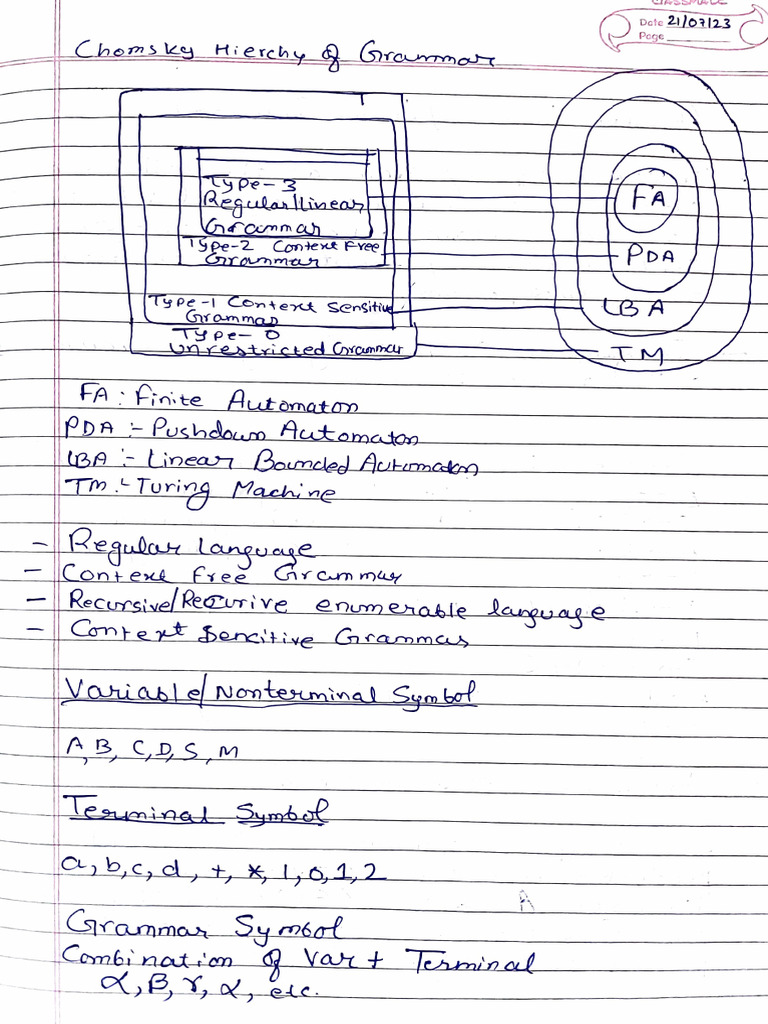 CLASSMATE
Date 21/07/23
Page
Chomsky Hierchy of Grammar
Type-3
Regular/Linear
Grammar
Type-2 Context Free
Grammar
Type-1 Context Sensitive
Grammar
Type-0
Unrestricted Grammar
FA
PDA
LBA
TM
FA : Finite Automaton
PDA :- Pushdown Automaton
LBA :- Linear Bounded Automaton
TM :- Turing Machine
- Regular language
- Context free Grammar
- Recursive/Recurive enumerable language
- Context Sencitive Grammar
Variable/Nonterminal Symbol
A, B, C, D, S, M
Terminal Symbol
a, b, c, d, +, *, 1, 0, 1, 2
Grammar Symbol
Combination of Var + Terminal
α, β, γ, α, etc.